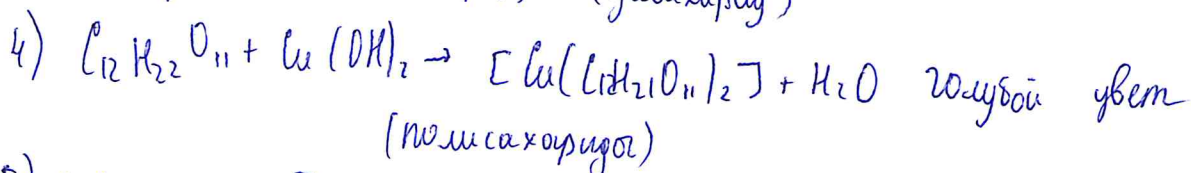 (дисахарид)
4) C₁₂H₂₂O₁₁ + Cu(OH)₂ → [Cu(C₁₂H₂₁O₁₁)₂] + H₂O голубой цвет
(полисахориды)